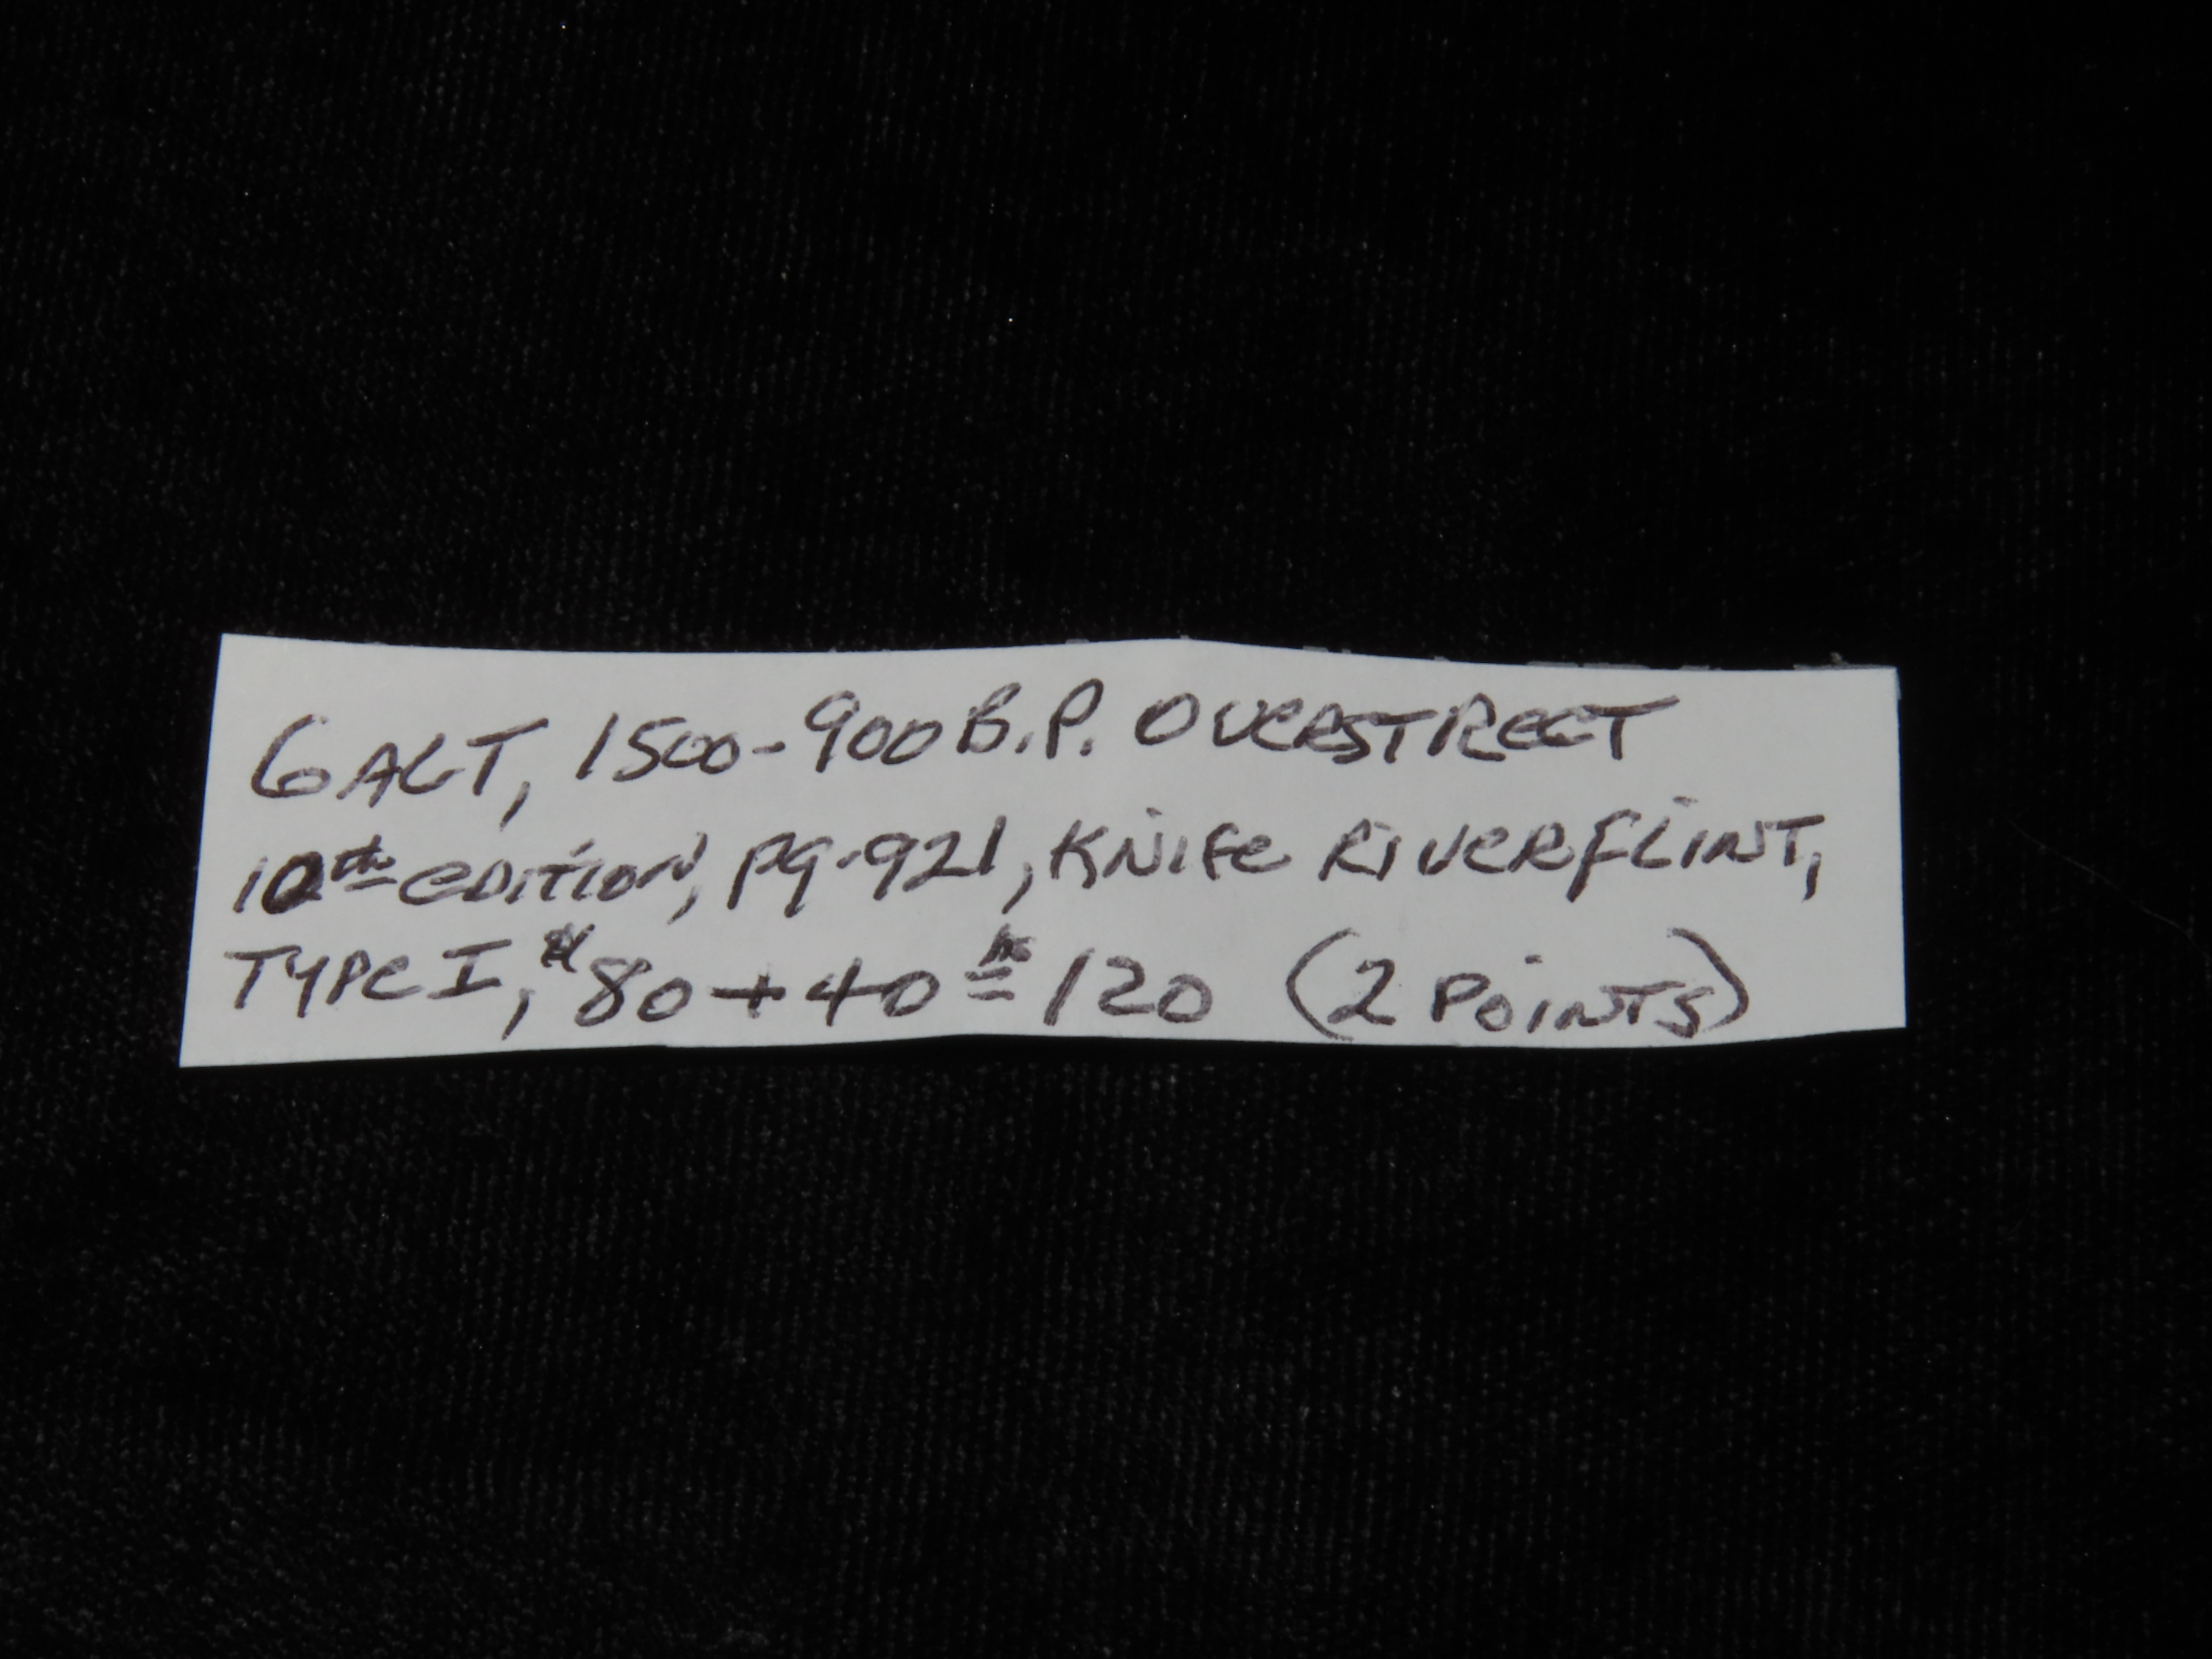 GALT, 1500-900 B.P. OVERSTREET
10th EDITION, pg. 921, KNIFE RIVER FLINT,
TYPE I, $80 + 40 = 120 (2 POINTS)